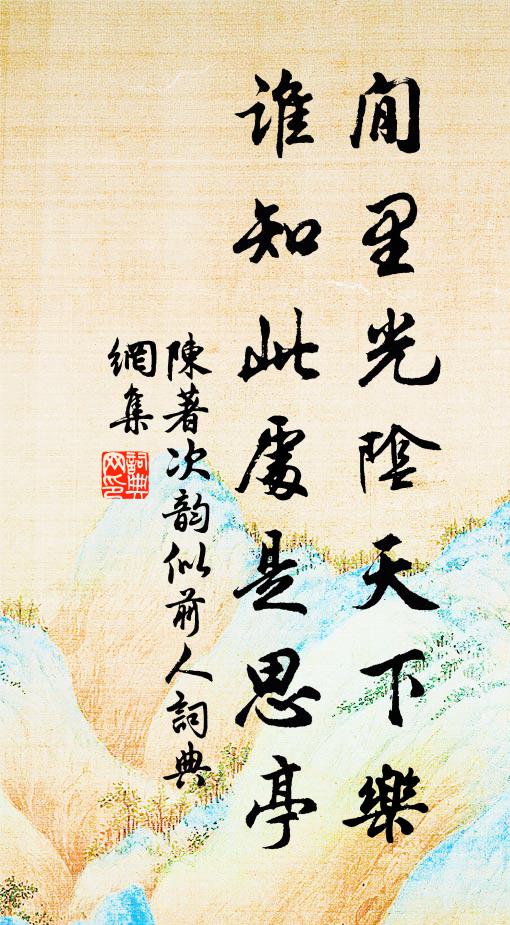 閒里光陰天下樂
誰知此處是思亭
陳著次韵似前人詞典
網集
詞典網印